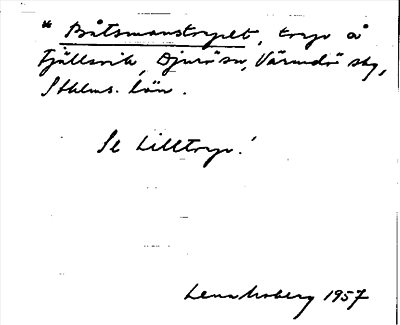 * Båtsmanstorpet, torp å
Fjällsvik, Djurö sn, Värmdö skg,
Sthlms. län.
Se Lilltorp!
Lena Moberg 1957